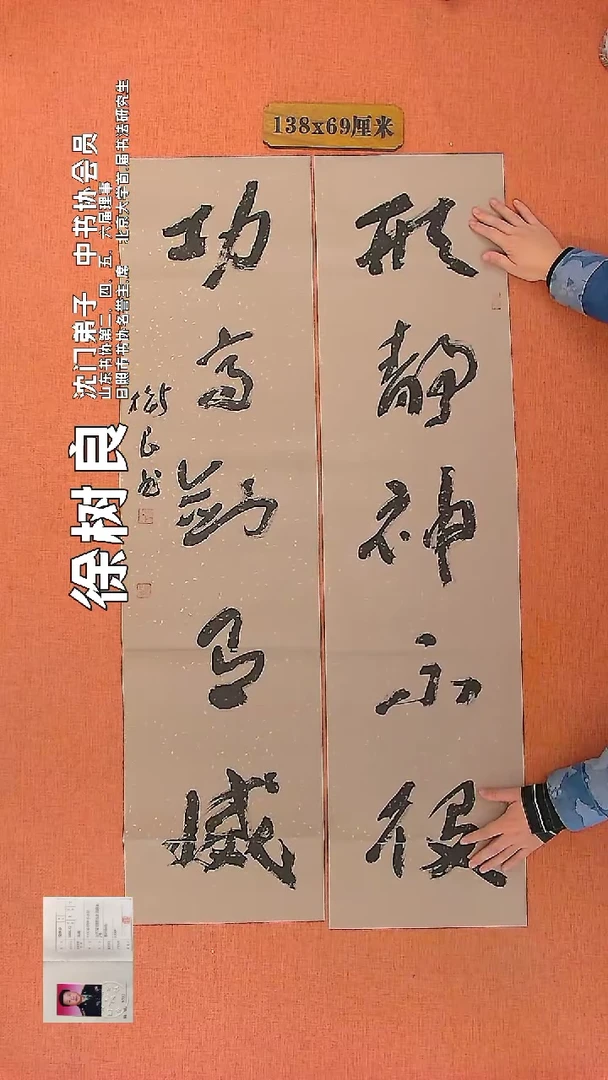 138x69厘米
形静神不役
功高剑乃藏
树良书
徐树良
沈门弟子 中书协会员
山东书协第二、四、五、六届理事
日照市书协名誉主席 北京大学首届书法研究生